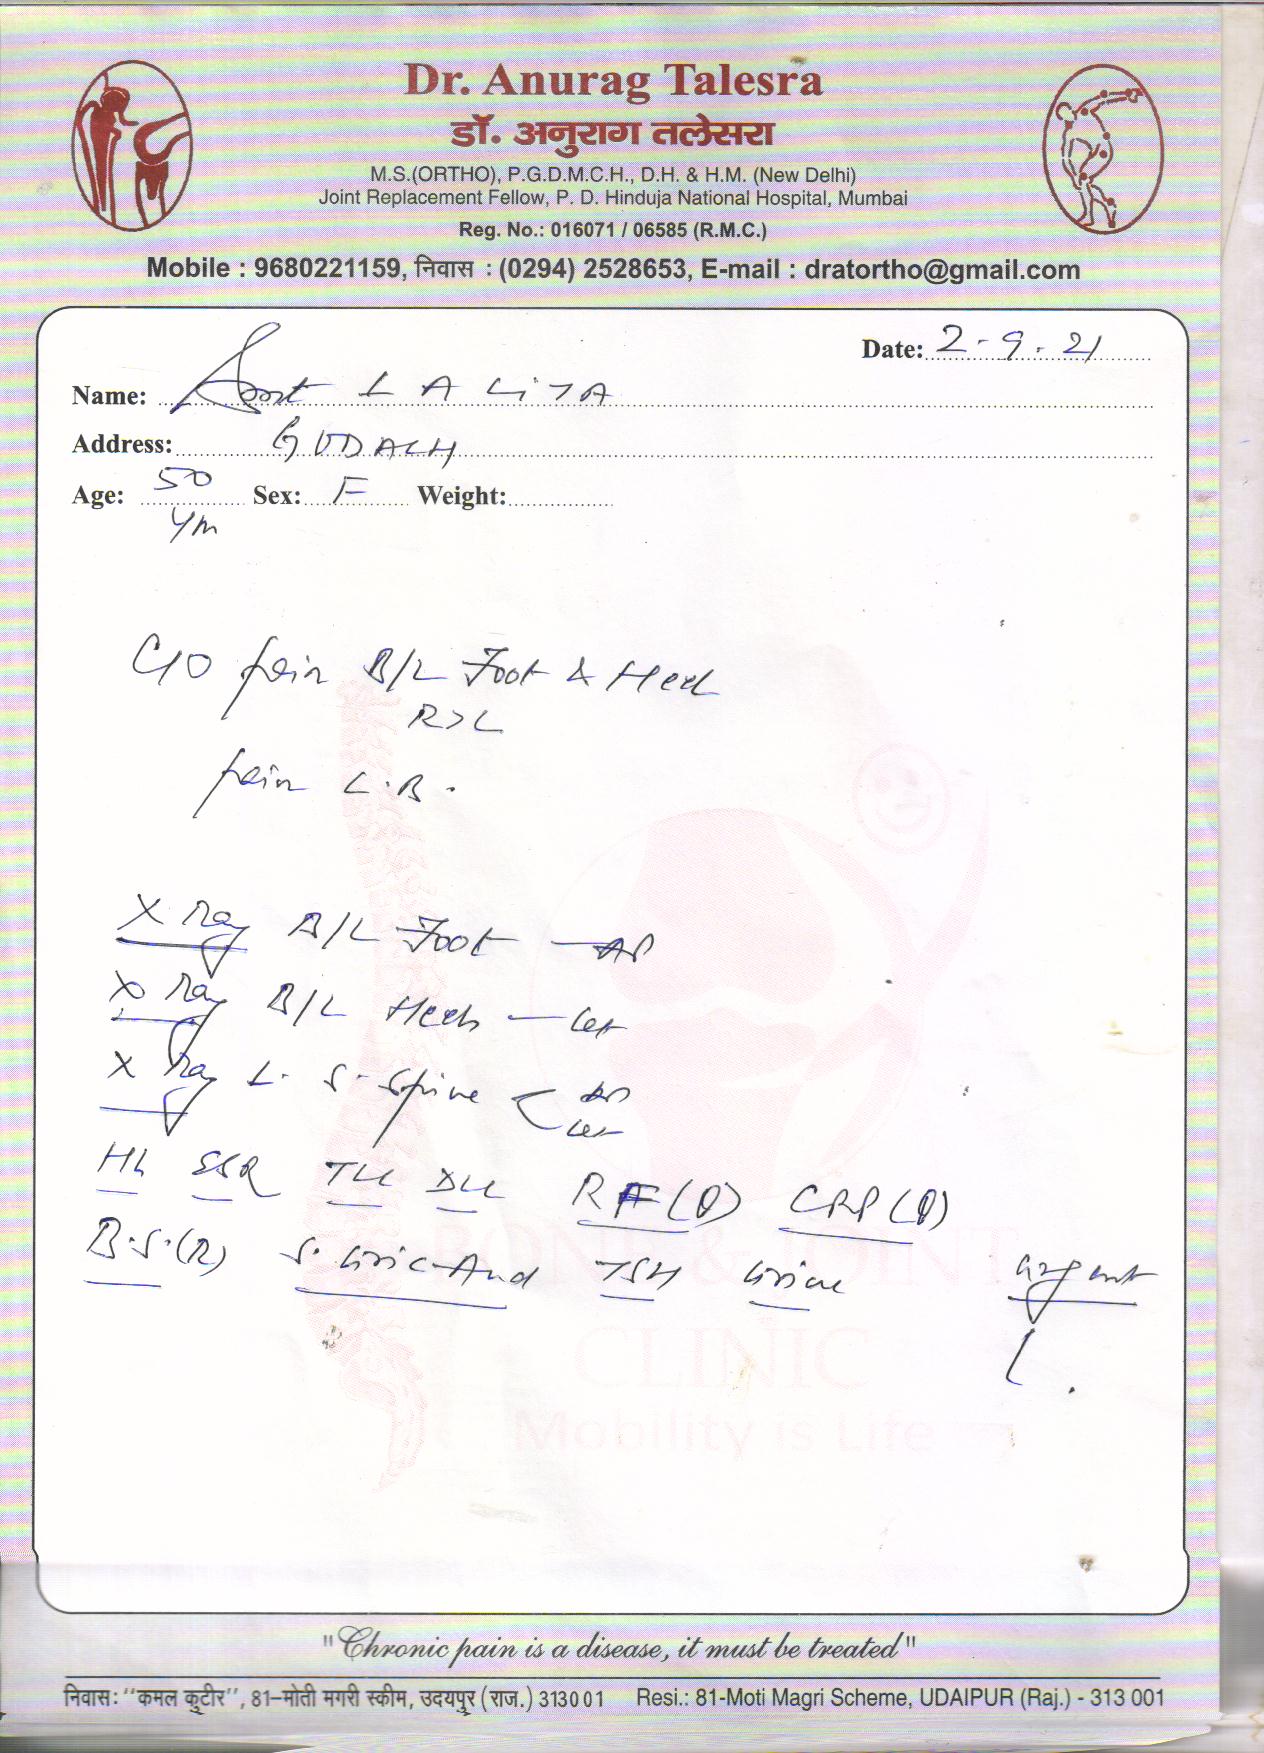 Dr. Anurag Talesra
डॉ. अनुराग तलेसरा
M.S.(ORTHO), P.G.D.M.C.H., D.H. & H.M. (New Delhi)
Joint Replacement Fellow, P. D. Hinduja National Hospital, Mumbai
Reg. No.: 016071 / 06585 (R.M.C.)
Mobile : 9680221159, निवास : (0294) 2528653, E-mail : dratortho@gmail.com
Date: 2-9-21
Name: Smt LALITA
Address: GUDACH
Age: 50 Sex: F Weight:
C/O pain B/L Foot & Heel
R>L
pain L.B.
X Ray B/L Foot — AP
X Ray B/L Heels — Lat
X Ray L. S. Spine < AP
Lat
Hb ESR TLC DLC RF(Q) CRP(Q)
B.S.(R) S. Uric Acid TSH Urine urgent
BONE & JOINT
CLINIC
Mobility is Life
"Chronic pain is a disease, it must be treated"
निवास: "कमल कुटीर", 81-मोती मगरी स्कीम, उदयपुर (राज.) 313001 Resi.: 81-Moti Magri Scheme, UDAIPUR (Raj.) - 313 001